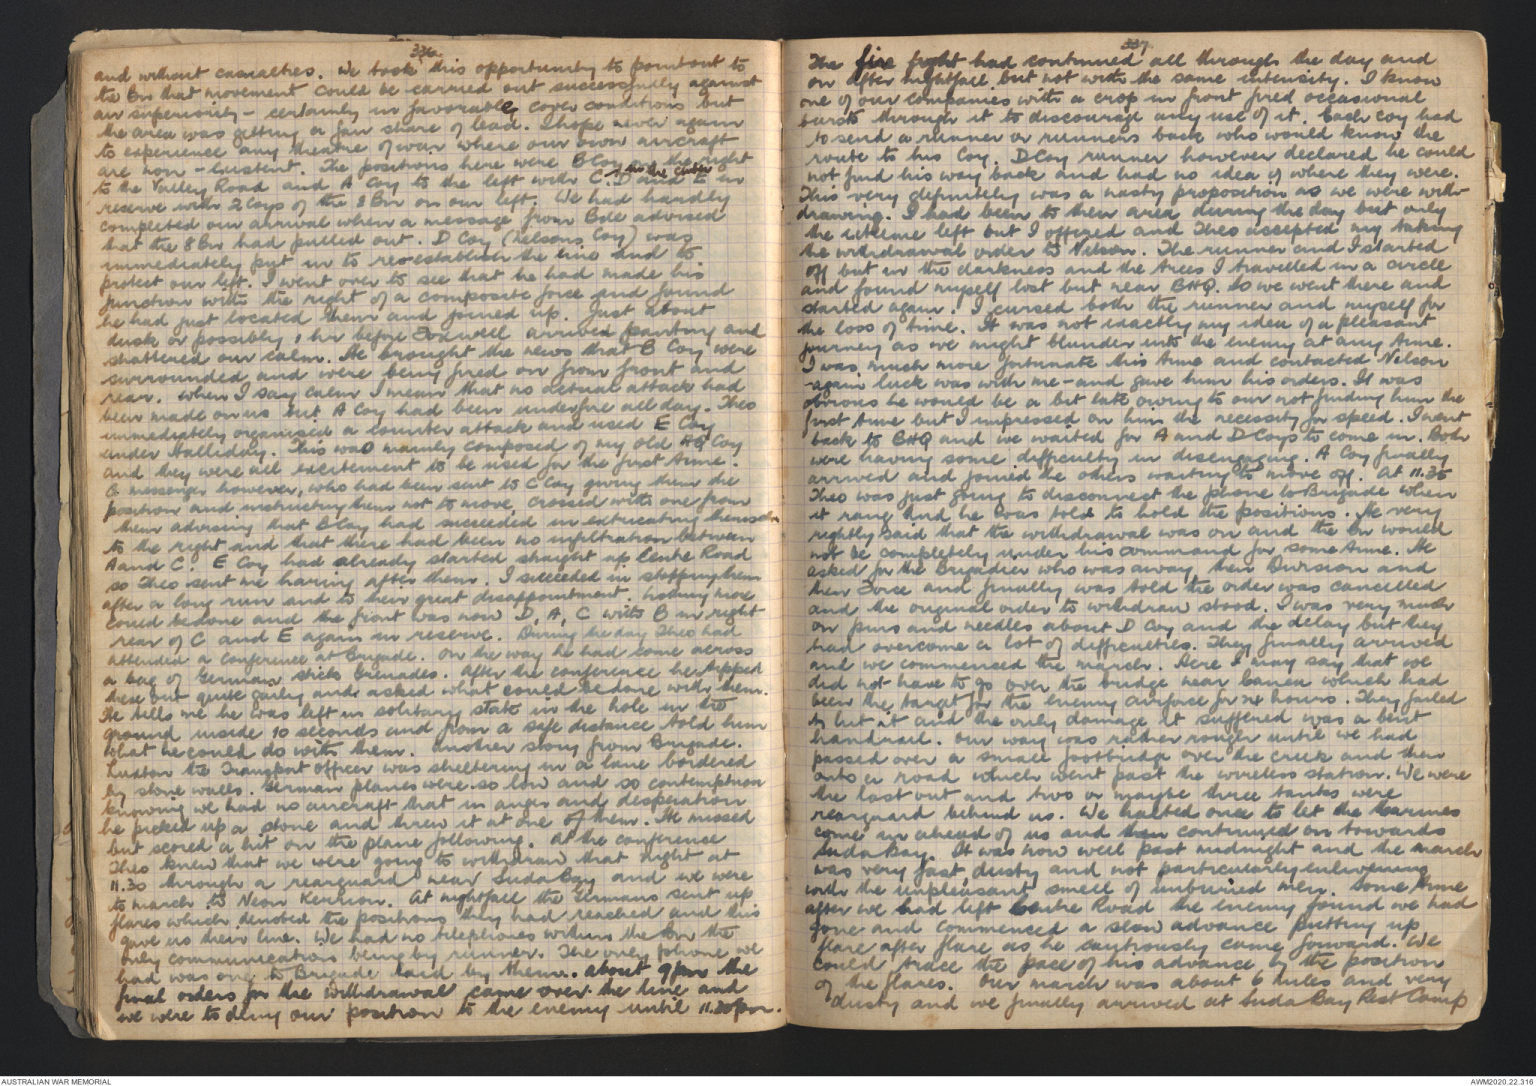 336
and without casualties. We took this opportunity to point out to
the Bn that movement could be carried out successfully against
air superiority - certainly in favorable cover conditions but
the area was getting a fair share of lead. I hope never again
to experience any theatre of war where our own aircraft
are non-existent. The positions here were B Coy on the right
to the Valley Road and A Coy to the left with C in the centre D and E in
reserve with 2 Coys of the 8 Bn on our left. We had hardly
completed our arrival when a message from Bde advised
that the 8 Bn had pulled out. D Coy (Nelsons Coy) was
immediately put in to re-establish the line and to
protect our left. I went over to see that he had made his
junction with the right of a composite force and found
he had just located them and joined up. Just about
dusk or possibly 1 hr before arrived panting and
shattered our calm. He brought the news that B Coy were
surrounded and were being fired on from front and
rear. When I say calm I mean that no actual attack had
been made on us but A Coy had been under fire all day. Theo
immediately organised a counter attack and used E Coy
under Halliday. This was mainly composed of my old HQ Coy
and they were all excitement to be used for the first time.
A messenger however, who had been sent to C Coy giving them the
position and instructing them not to move, crossed with one from
them advising that B Coy had succeeded in extricating themselves
to the right and that there had been no infiltration between
A and C. E Coy had already started straight up Centre Road
so Theo sent me haring after them. I succeeded in stopping them
after a long run and to their great disappointment. Nothing more
could be done and the front was now D, A, C with B in right
rear of C and E again in reserve. During the day Theo had
attended a conference at Brigade. On the way he had come across
a bag of German stick grenades. After the conference he tipped
these out quite gaily and asked what could be done with them.
He tells me he was left in solitary state in the hole in the
ground inside 10 seconds and from a safe distance told him
what he could do with them. Another story from Brigade.
Luxton the Transport officer was sheltering in a lane bordered
by stone walls. German planes were so low and so contemptuous
knowing we had no aircraft that in anger and desperation
he picked up a stone and threw it at one of them. He missed
but scored a hit on the plane following. At the conference
Theo knew that we were going to withdraw that night at
11.30 through a rearguard near Suda Bay and we were
to march to Neon Khorion. At nightfall the Germans sent up
flares which denoted the positions they had reached and this
gave us their line. We had no telephones within the Bn the
only communications being by runner. The only phone we
had was one to Brigade laid by them. About 9 pm the
final orders for the withdrawal came over the line and
we were to deny our position to the enemy until 11.30 pm.
337
The fire fight had continued all through the day and
on after nightfall but not with the same intensity. I know
one of our companies with a crop in front fired occasional
bursts through it to discourage any use of it. Each coy had
to send a runner or runners back who would know the
route to his Coy. D Coy runner however declared he could
not find his way back and had no idea of where they were.
This very definitely was a nasty proposition as we were with-
drawing. I had been to their area during the day but only
the extreme left but I offered and Theo accepted my taking
the withdrawal order to Nelson. The runner and I started
off but in the darkness and the trees I travelled in a circle
and found myself lost but near BHQ. So we went there and
started again. I cursed both the runner and myself for
the loss of time. It was not exactly my idea of a pleasant
journey as we might blunder into the enemy at any time.
I was much more fortunate this time and contacted Nelson
-again luck was with me - and gave him his orders. It was
obvious he would be a bit late owing to our not finding him the
first time but I impressed on him the necessity for speed. I went
back to BHQ and we waited for A and D Coys to come in. Both
were having some difficulty in disengaging. A Coy finally
arrived and joined the others waiting to move off. At 11.35
Theo was just going to disconnect the phone to Brigade when
it rang and he was told to hold the positions. He very
rightly said that the withdrawal was on and the Bn would
not be completely under his command for some time. He
asked for the Brigadier who was away, then Division and
then Force and finally was told the order was cancelled
and the original order to withdraw stood. I was very much
on pins and needles about D Coy and the delay but they
had overcome a lot of difficulties. They finally arrived
and we commenced the march. Here I may say that we
did not have to go over the bridge near Canea which had
been the target for the enemy airforce for 24 hours. They failed
to hit it and the only damage it suffered was a bent
handrail. Our way was rather rough until we had
passed over a small footbridge over the creek and then
onto a road which went past the wireless station. We were
the last out and two or maybe three tanks were
rearguard behind us. We halted once to let the Marines
come in ahead of us and then continued on towards
Suda Bay. It was now well past midnight and the march
was very fast, dusty and not particularly enlivening
with the unpleasant smell of unburied men. Some time
after we had left Centre Road the enemy found we had
gone and commenced a slow advance putting up
flare after flare as he cautiously came forward. We
could trace the pace of his advance by the position
of the flares. Our march was about 6 miles and very
dusty and we finally arrived at Suda Bay Rest Camp
AUSTRALIAN WAR MEMORIAL
AWM2020.22.316